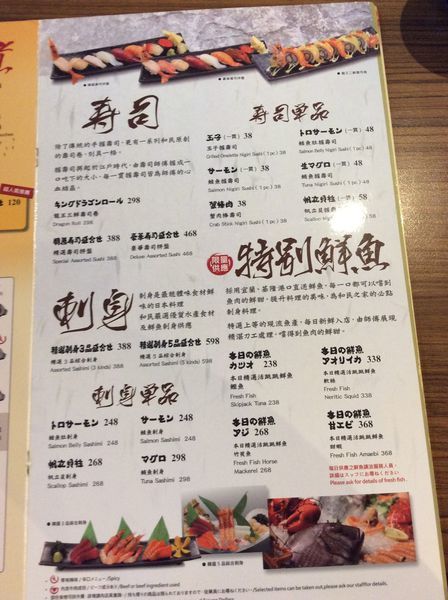 壽司
除了傳統的手握壽司，更有一系列和民原創
的壽司卷，別具一格。
キングドラゴンロール 298
龍王三鮮壽司卷
Dragon Roll
精選壽司拼盤
Special Assorted Sushi 388
豪華壽司拼盤
Deluxe Assorted Sushi 468
壽司單品
玉子(一貫) 38
玉子握壽司
Grilled Omelette Nigiri Sushi (1 pc) 38
サーモン(一貫) 38
鮭魚握壽司
Salmon Nigiri Sushi (1 pc) 38
蟹棒肉 38
蟹肉棒壽司
Crab Stick Nigiri Sushi (1 pc) 38
トロサーモン(一貫) 48
鮭魚肚握壽司
Salmon Belly Nigiri Sushi (1 pc) 48
生マグロ(一貫) 48
鮪魚握壽司
Tuna Nigiri Sushi (1 pc) 48
帆立貝柱(一貫) 58
帆立貝握壽司
Scallop Nigiri Sushi (1 pc) 58
刺身
刺身是最能體味食材鮮
味的日本料理
和民嚴選優質水產食材
及鮮魚刺身供應
精選3品綜合刺身
Assorted Sashimi (3 kinds) 388
精選5品綜合刺身
Assorted Sashimi (5 kinds) 598
刺身單品
トロサーモン 248
鮭魚肚刺身
Salmon Belly Sashimi 248
サーモン 248
鮭魚刺身
Salmon Sashimi 248
帆立貝柱 268
帆立貝刺身
Scallop Sashimi 268
マグロ 298
鮪魚刺身
Tuna Sashimi 298
限量供應
特別鮮魚
採用宜蘭、基隆港口直送鮮魚，每一口都可以嚐到
魚肉的鮮甜，提升料理的美味，為和民之家的必點
刺身料理。
特選上等的現流魚產，每日新鮮入店，由師傅展現
精湛刀工處理，嚐得到魚肉的鮮甜。
毎日の鮮魚
カツオ 238
本日精選活跳跳鮮魚
鰹魚
Fresh Fish
Skipjack Tuna 238
毎日の鮮魚
アオリイカ 338
本日精選活跳跳鮮魚
軟絲
Fresh Fish
Neritic Squid 338
毎日の鮮魚
アジ 268
本日精選活跳跳鮮魚
竹莢魚
Fresh Fish Horse
Mackerel 268
毎日の鮮魚
甘エビ 368
本日精選活跳跳鮮魚
甜蝦
Fresh Fish Amaebi 368
每日供應之鮮魚請洽服務人員。
詳細はスッフにお尋ねください
Please ask for details of fresh fish.
精選3品綜合刺身
精選5品綜合刺身
/Spicy
/Beef or beef ingredient used
/Selected items can be taken out, please ask our staff for details.
120